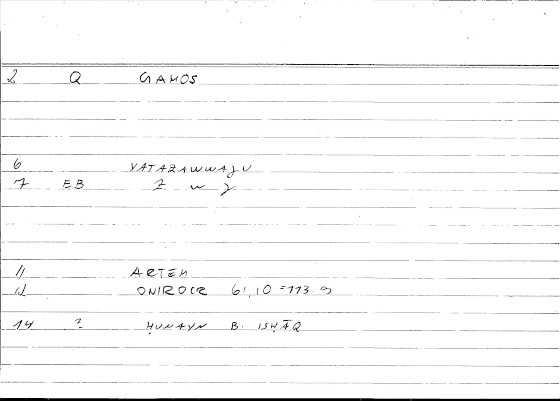 2 Q GAMOS
6 YATAZAWWAǦU
7 EB z w ǧ
11 ARTEM
12 ONIROCR 61,10 = 113.9
14 ? ḤUNAYN B. ISḤĀQ